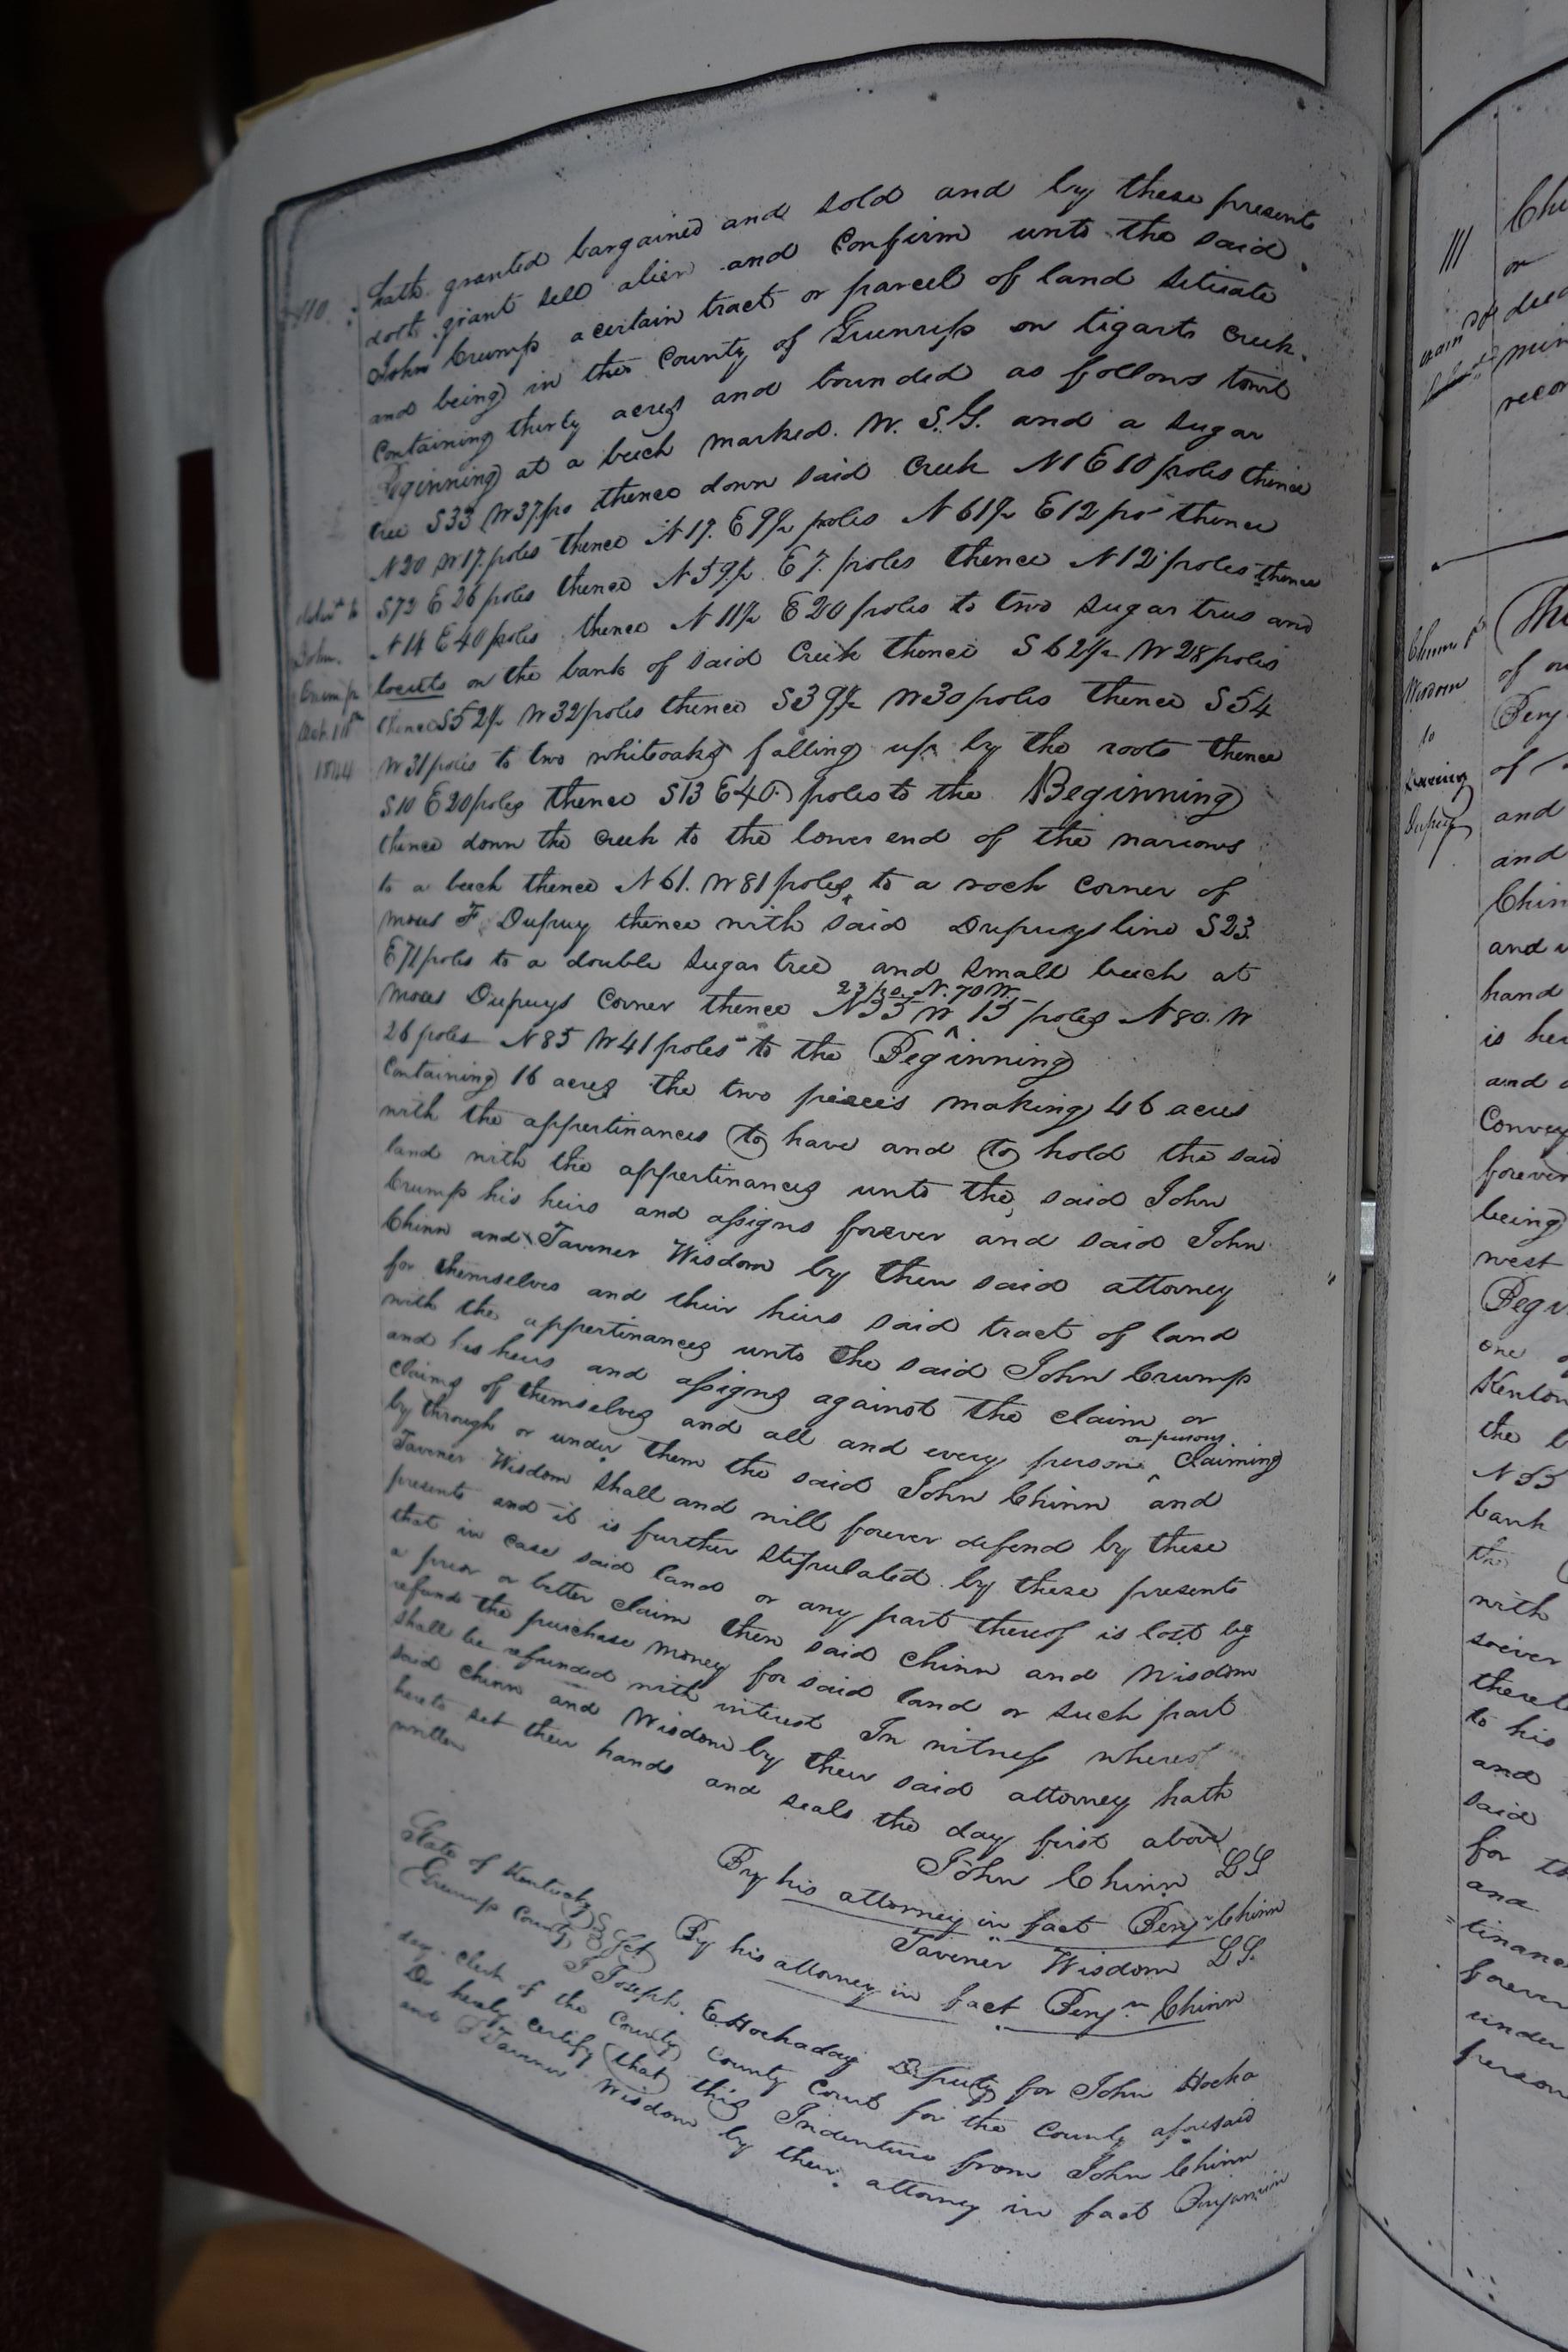 110
hath granted bargained and sold and by these presents
doth grant sell alien and confirm unto the said
John Crump a certain tract or parcel of land situate
and being in the County of Greenup on tigarts creek
containing thirty acres and bounded as follows towit
Beginning at a beech marked W. S.G. and a Sugar
tree S33 W37po thence down said creek N1 E10 poles thence
N20 W17 poles thence N17. E9½ poles N61½ E12 po thence
S72 E26 poles thence N59½ E7. poles thence N12 poles thence
N14 E40 poles thence N11½ E20 poles to two Sugar trees and
locusts on the bank of said Creek thence S62½ W28 poles
thence S52½ W32 poles thence S39½ W30 poles thence S54
W31 poles to two whiteoaks falling up by the roots thence
S10 E20 poles thence S13 E40 poles to the Beginning
thence down the creek to the lower end of the narrows
to a beech thence N61. W81 poles to a rock corner of
Moses F Dupuy thence with said Dupuys line S23.
E71 poles to a double Sugar tree and small beech at
Moses Dupuys Corner thence N35 W 15 poles N80. W
23 po. N. 70 W.
26 poles N85 W41 poles to the Beginning
Containing 16 acres the two pieces making 46 acres
with the appertinances to have and to hold the said
land with the appertinances unto the said John
Crump his heirs and assigns forever and said John
Chinn and Tavener Wisdom by their said attorney
for themselves and their heirs said tract of land
with the appertinances unto the said John Crump
and his heirs and assigns against the claim or
claims of themselves and all and every person or persons claiming
by through or under them the said John Chinn and
Tavener Wisdom shall and will forever defend by these
presents and it is further stipulated by these presents
that in case said land or any part thereof is lost by
a prior or better claim then said Chinn and Wisdom
refund the purchase money for said land or such part
shall be refunded with interest In witness whereof
said Chinn and Wisdom by their said attorney hath
hereto set their hands and seals the day first above
written
John Chinn LS
By his attorney in fact Benjn Chinn
Tavener Wisdom LS.
By his attorney in fact Benjn Chinn
State of Kentucky
Greenup County Sct
I Joseph. E. Hockaday Deputy for John Hocka
day Clerk of the County Court for the County aforesaid
Do hereby certify that this Indenture from John Chinn
and Tavener Wisdom by their attorney in fact Benjamin
John
Crump
1844
111
Chi
or
deed
recor
Chinn
Wisdom
to
Dupuy
Thi
of ou
Benj
of
and
and
Chin
and w
hand
is her
and
Convey
forever
being
west
Begi
one
Kenton
the
N55
bank
the
with
soever
there
to his
and
said
for th
and
tinanc
forever
under
person